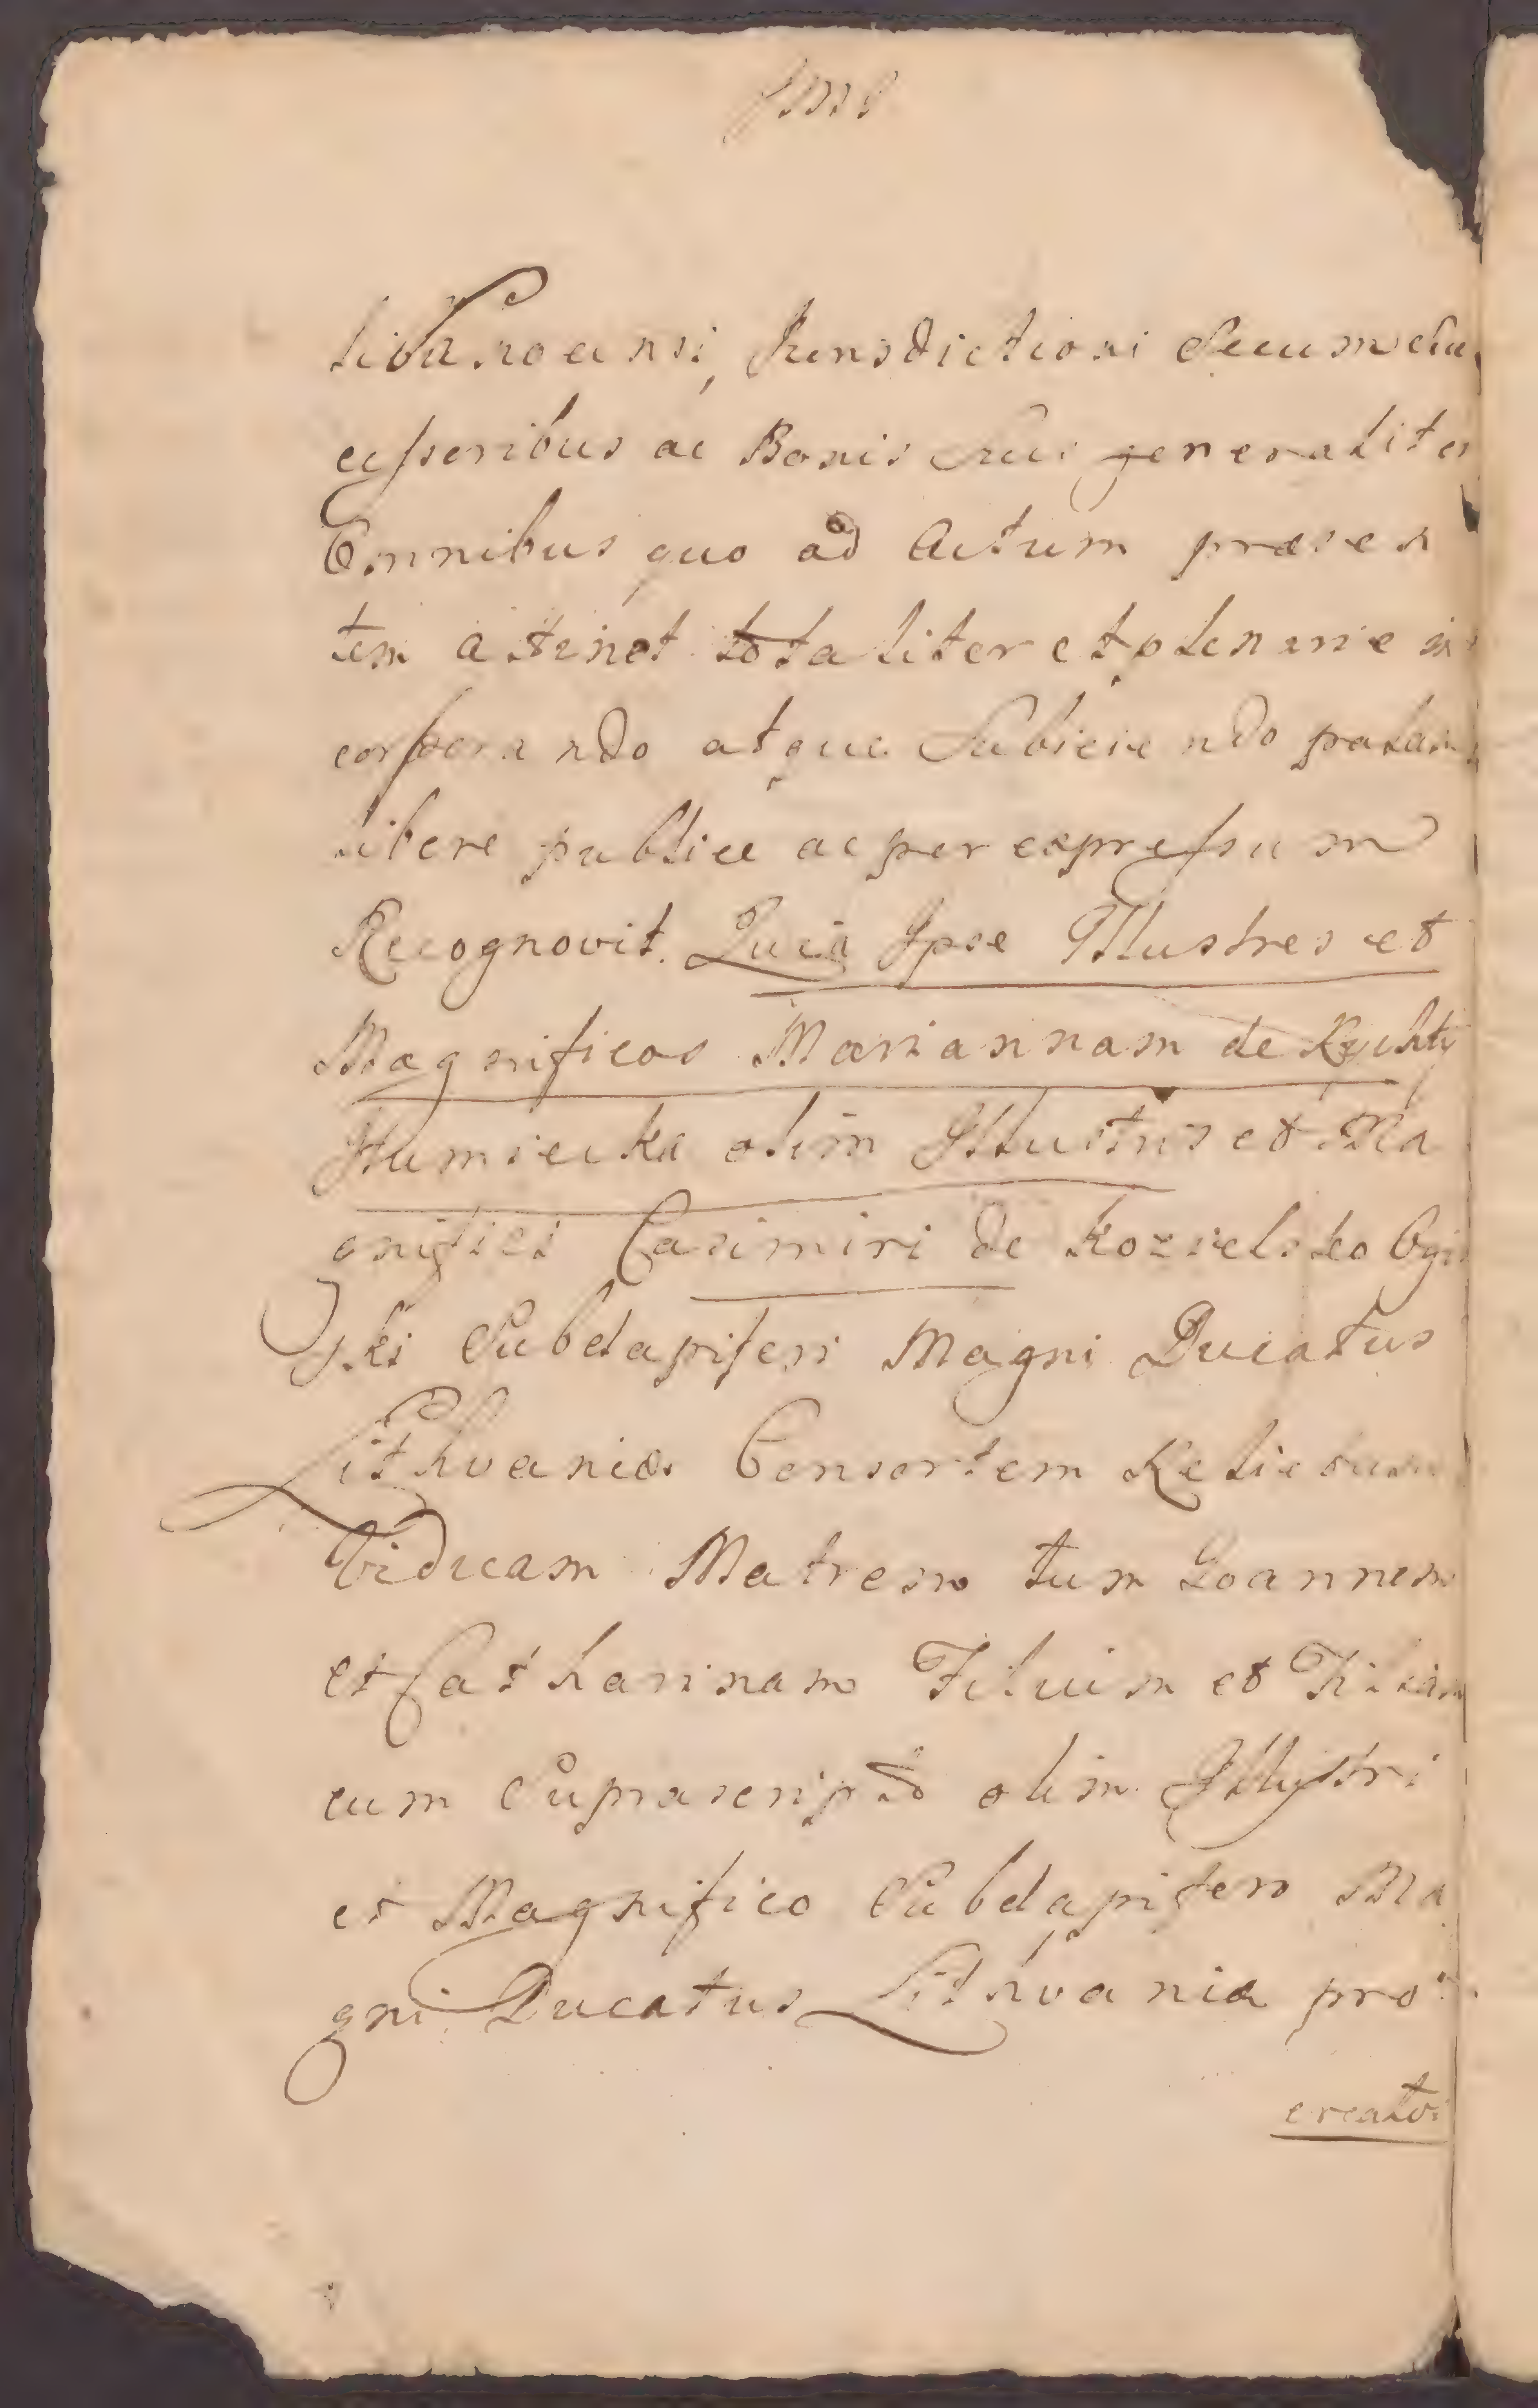 Jurisdictioni Secum Suc
cessoribus ac Bonis Suis generaliter
Omnibus quo ad Actum præsen
tem attinet totaliter et plenarie in
corporando atque Subiciendo palam
libere publice ac per expressum
Recognovit. Quia Ipse Illustres et
Magnificos Mariannam de Rychty
Humiecka olim Illustris et Ma
gnifici Casimiri de Kozielsko Ogin
ski Subdapiferi Magni Ducatus
Lithvaniæ Consortem Relictam
Viduam Matrem tum Joannem
et Catharinam Filium et Filiam
cum Suprascripto olim Illustri
et Magnifico Subdapifero Ma
gni Ducatus Lithvaniæ pro
creatos